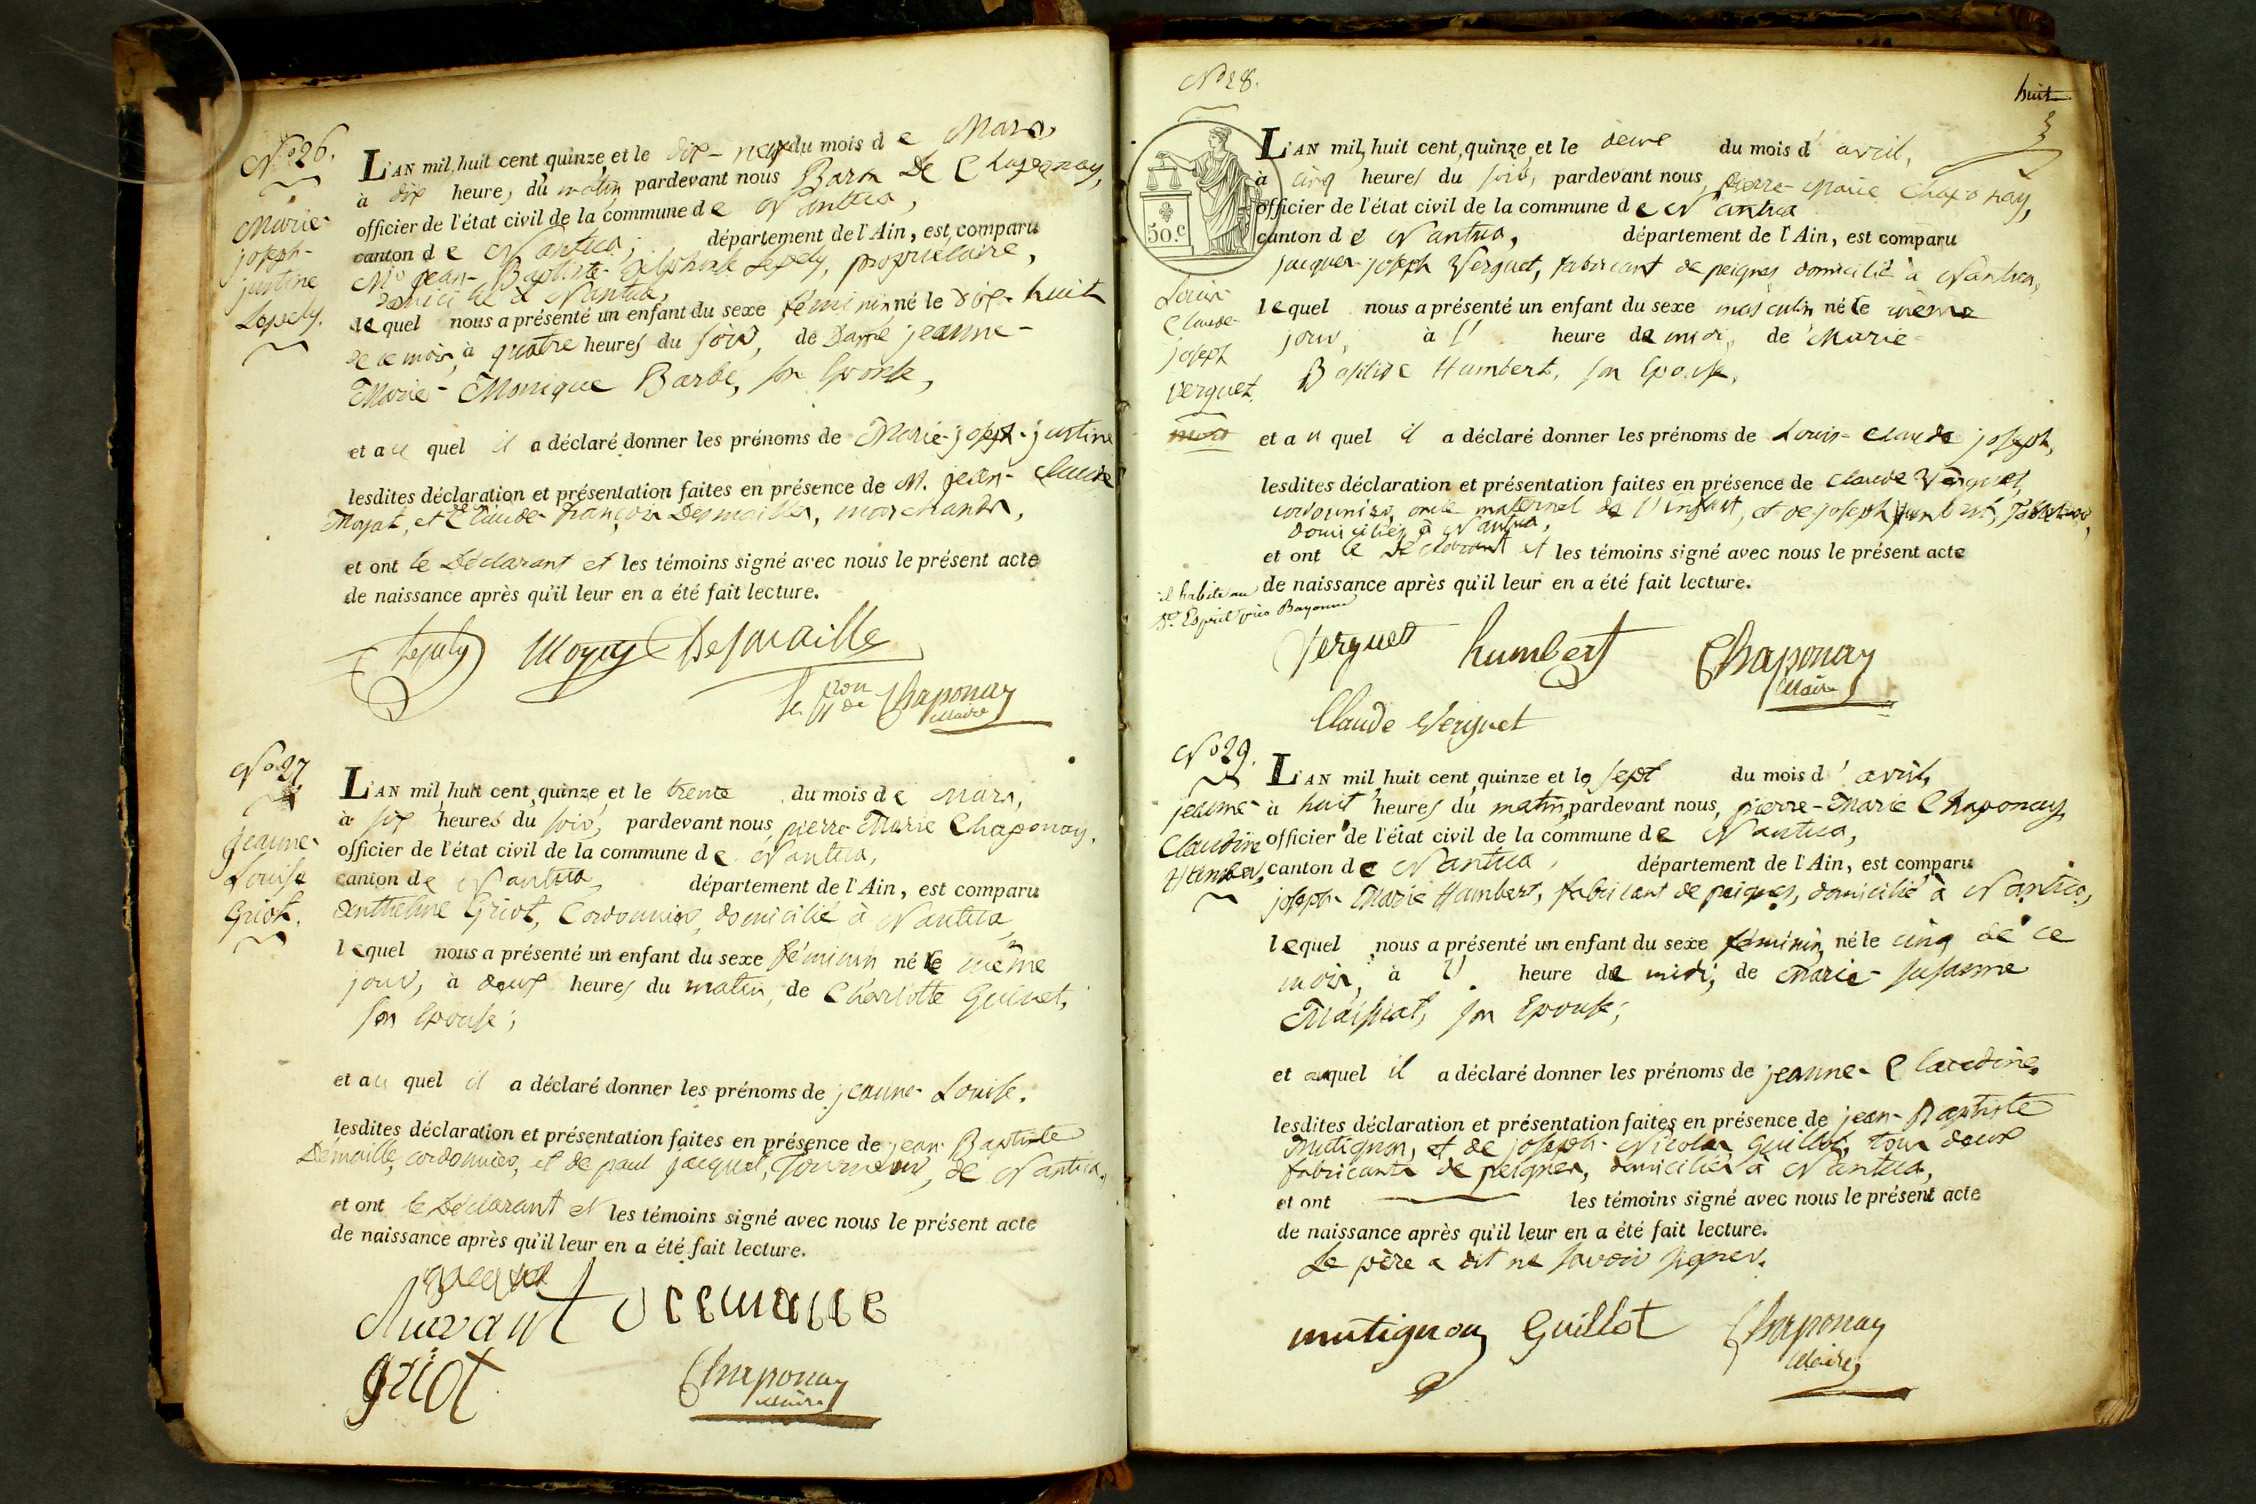 N.o 26.
Marie-
joseph-
justine
Lepely.
L'AN mil huit cent quinze et le dix-neuf du mois de Mars,
à dix heures du matin pardevant nous Baron De Chaponay,
officier de l'état civil de la commune de Nantua,
canton de Nantua, département de l'Ain, est comparu
Mr. jean-Baptiste-Delphine Lepely, propriétaire,
domicilié à Nantua,
lequel nous a présenté un enfant du sexe féminin né le dix-huit
de ce mois, à quatre heures du soir, de Dame jeanne-
Marie-Monique Barbe, son Epouse,
et au quel il a déclaré donner les prénoms de Marie-joseph-justine
lesdites déclaration et présentation faites en présence de M. jean-Claude
Moyat, et de Claude-françois Desmailles, marchands,
et ont le Déclarant et les témoins signé avec nous le présent acte
de naissance après qu'il leur en a été fait lecture.
Lepely Desmaille
Chaponay
Maire
No 27
jeanne-
Louise
Griot.
L'AN mil huit cent quinze et le trente du mois de mars,
à six heures du soir, pardevant nous pierre Marie Chaponay,
officier de l'état civil de la commune de Nantua,
canton de Nantua, département de l'Ain, est comparu
Anthelme Griot, Cordonnier, domicilié à Nantua,
lequel nous a présenté un enfant du sexe féminin né le même
jour, à deux heures du matin, de Charlotte Guinet,
son Epouse;
et au quel il a déclaré donner les prénoms de jeanne-Louise.
lesdites déclaration et présentation faites en présence de jean Baptiste
Démaille, cordonnier, et de paul jacquet, Tourneur, de Nantua,
et ont le Déclarant et les témoins signé avec nous le présent acte
de naissance après qu'il leur en a été fait lecture.
jacquet
Demaille
griot
Chaponay
Maire
No 28.
huit
50.c
Louis-
Claude-
joseph
Verguet.
mort
L'AN mil huit cent quinze et le deux du mois d'avril,
à cinq heures du soir, pardevant nous, pierre-Marie Chaponay,
officier de l'état civil de la commune de Nantua
canton de Nantua, département de l'Ain, est comparu
jacques-joseph Verguet, fabricant de peignes domicilié à Nantua,
lequel nous a présenté un enfant du sexe masculin né le même
jour, à l' heure de midi, de Marie-
Baptise Humbert, son Epouse,
et au quel il a déclaré donner les prénoms de Louis-Claude joseph,
lesdites déclaration et présentation faites en présence de Claude Verguet,
cordonnier, oncle maternel de l'enfant, et de joseph humbert,
domiciliés à Nantua,
et ont le Déclarant et les témoins signé avec nous le présent acte
de naissance après qu'il leur en a été fait lecture.
il habite au
St. Esprit près Bayonne
Verguet humbert Chaponay
Maire
Claude Verguet
No 29.
jeanne-
Claudine
Humbert
L'AN mil huit cent quinze et le sept du mois d'avril,
à huit heures du matin, pardevant nous, pierre-Marie Chaponay,
officier de l'état civil de la commune de Nantua,
canton de Nantua, département de l'Ain, est comparu
joseph-Marie Humbert, fabricant de peignes, domicilié à Nantua,
lequel nous a présenté un enfant du sexe féminin, né le cinq de ce
mois, à l' heure de midi, de Marie-Susanne
Maissiat, son Epouse;
et auquel il a déclaré donner les prénoms de jeanne-Claudine,
lesdites déclaration et présentation faites en présence de jean-Baptiste
Mutignon, et de joseph-Nicolas Guillot, tous deux
fabricants de peignes, domiciliés à Nantua,
et ont les témoins signé avec nous le présent acte
de naissance après qu'il leur en a été fait lecture.
Le père a dit ne savoir signer.
mutignon Guillot Chaponay
Maire